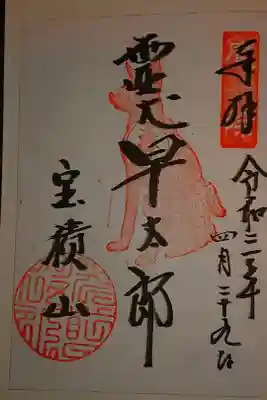 奉拝
令和三年
四月二十九日
霊犬早太郎
宝積山